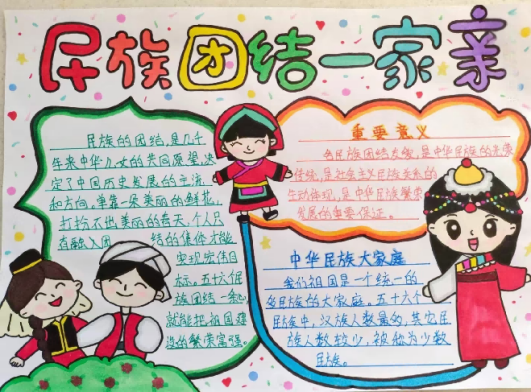 民族团结一家亲
民族的团结,是几千
年来中华儿女的共同愿望,决
定了中国历史发展的主流
和方向,单靠一朵美丽的鲜花,
打扮不出美丽的春天,个人只
有融入团结的集体才能
实现宏伟目
标。五十六个民
族团结一起,
就能把祖国建
设的繁荣富强。
重要意义
各民族团结友爱,是中华民族的光荣
传统,是社会主义民族关系的
生动体现,是中华民族繁荣
发展的重要保证。
中华民族大家庭
我们祖国是一个统一的
多民族的大家庭。五十六个
民族中,汉族人数最多,其它民
族人数较少,被称为少数
民族。